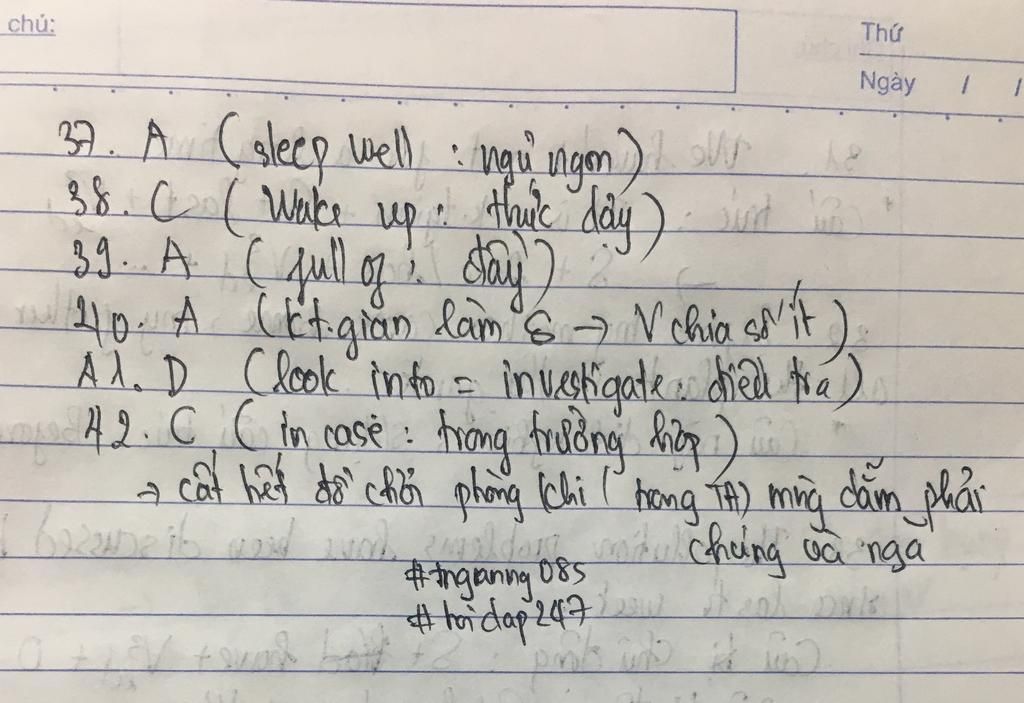 chú:
Thứ
Ngày / /
37. A (sleep well : ngủ ngon)
38. C (Wake up : thức dậy)
39. A (full of : đầy)
40. A (kt.gian làm S → V chia số ít)
41. D (look into = investigate : điều tra)
42. C (in case : trong trường hợp)
→ cất hết đồ chơi phòng khi (trong TA) mng dẫm phải
chúng và ngã
#hoidap247